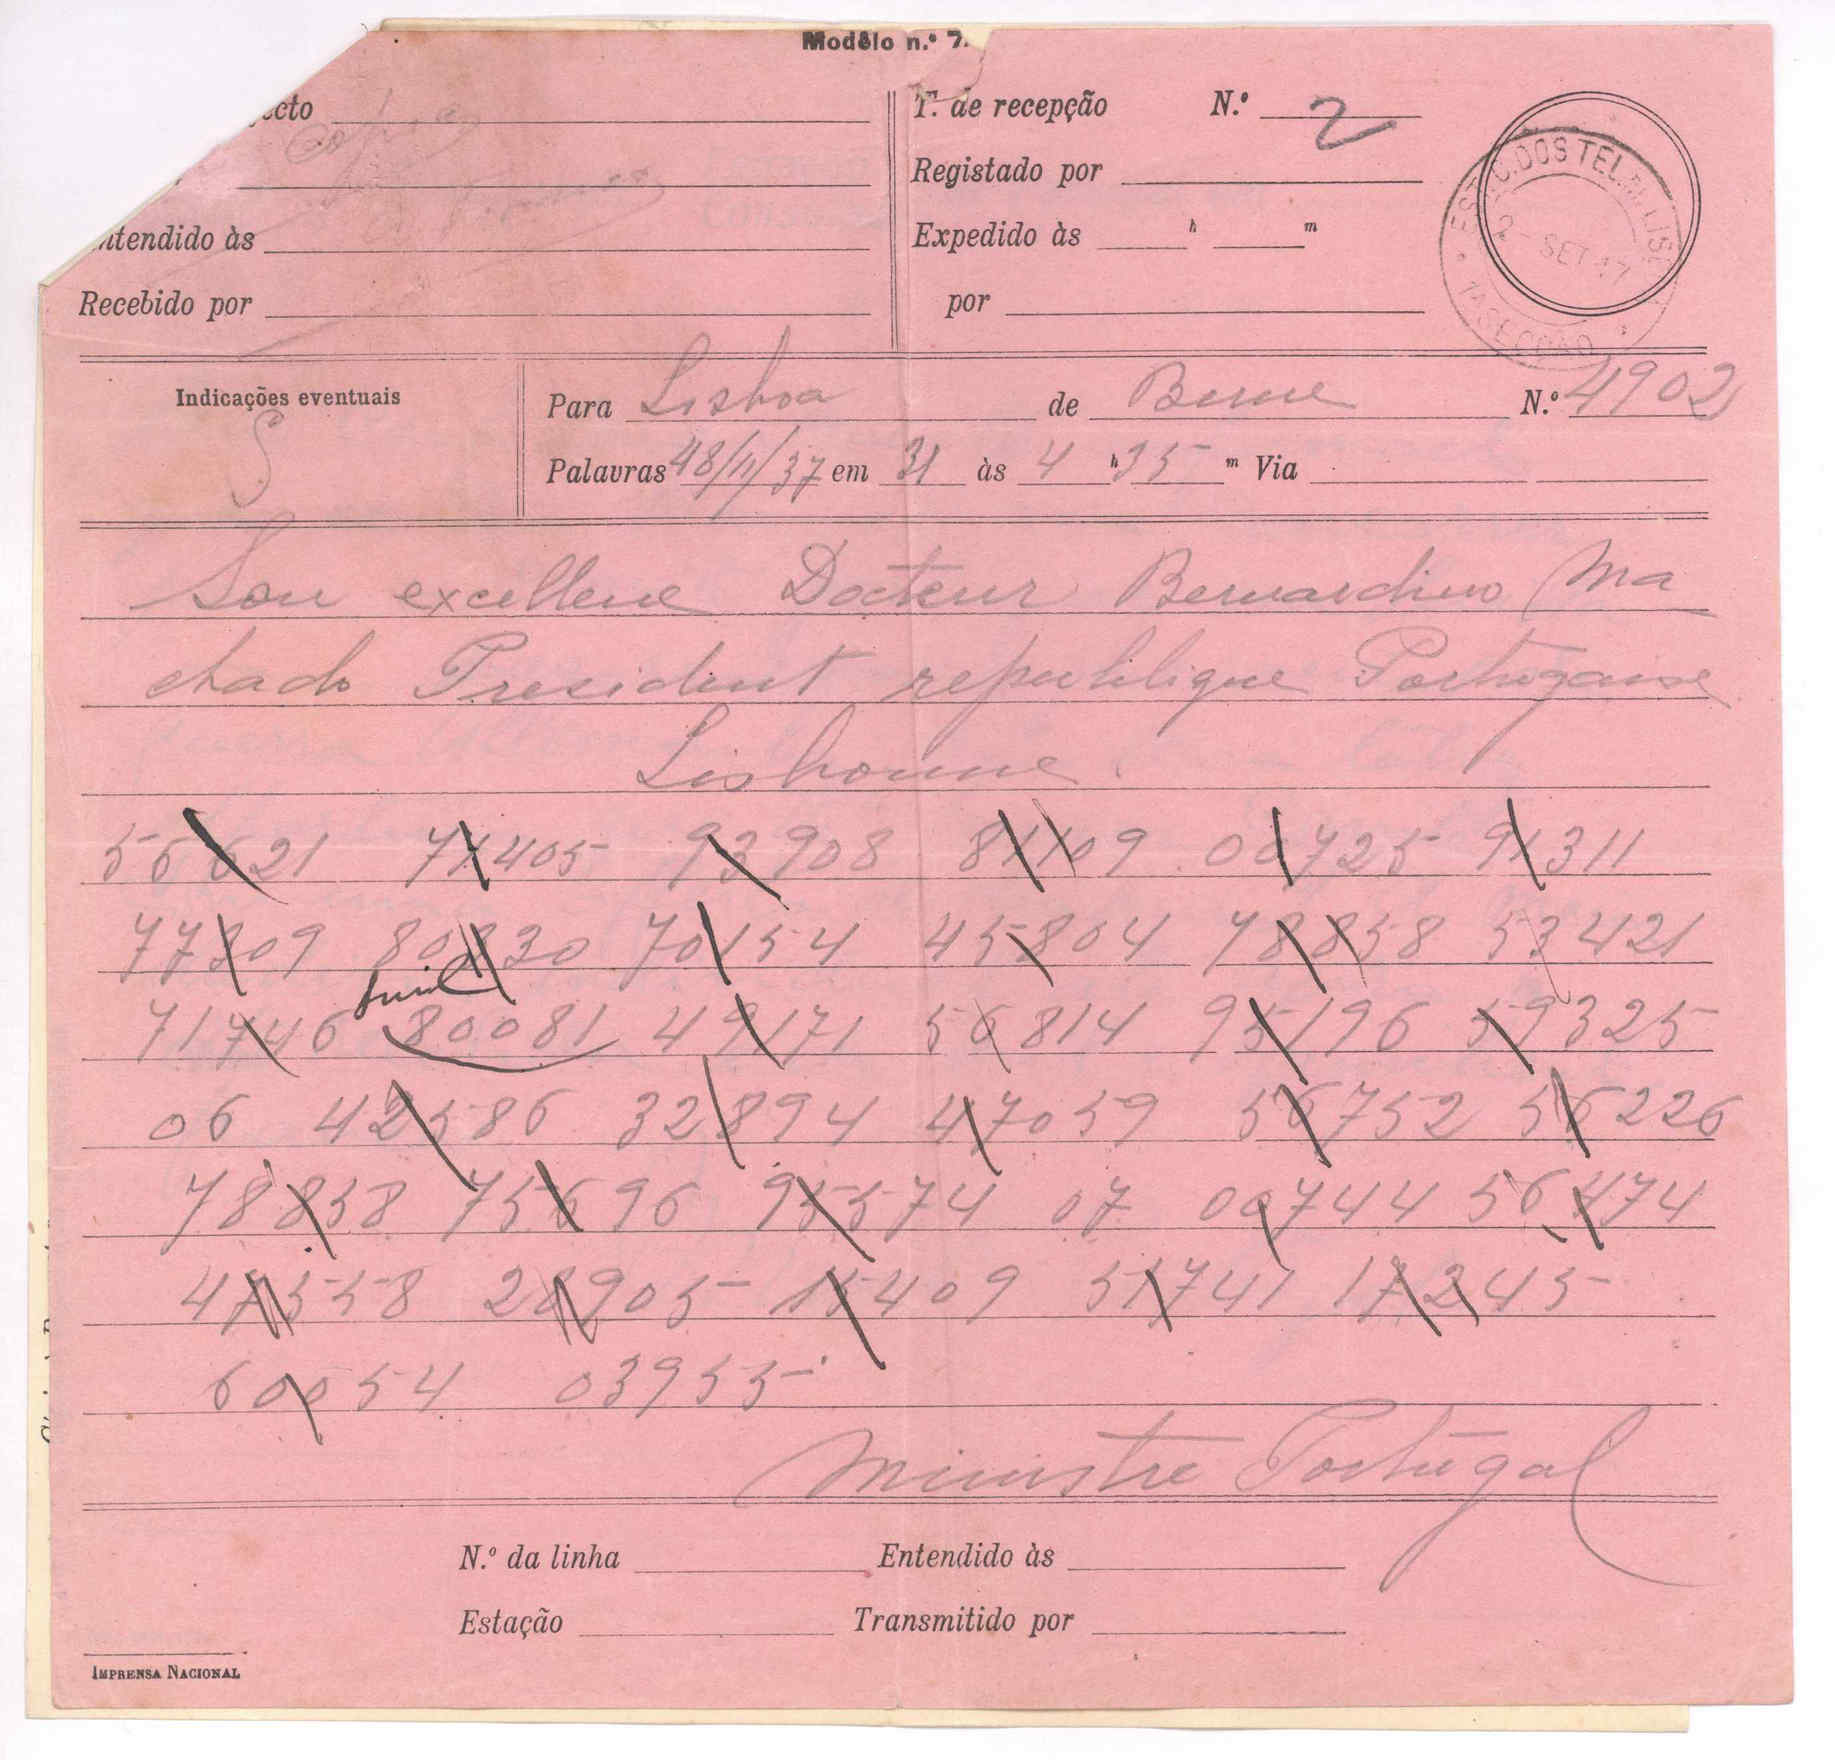 Modêlo n.º 7.
ecto
T. de recepção N.º 2
Registado por
ntendido às
Expedido às h m
Recebido por
por
2 - SET 17
Indicações eventuais
S
Para Lisboa de Berne N.º 4902
Palavras 48/11/37 em 31 às 4 h 35 m Via
Son excellence Docteur Bernardino Ma
chado President republique Portugaise
Lisbonne
55621 77405 93908 81109 00725 91311
77309 80830 70154 45804 78858 53421
71746 80081 49171 56814 95196 59325
06 42586 32894 47059 56752 56226
78858 75696 95574 07 00744 56474
47558 28905 15409 51741 17245
60054 03955
Ministre Portugal
N.º da linha Entendido às
Estação Transmitido por
IMPRENSA NACIONAL